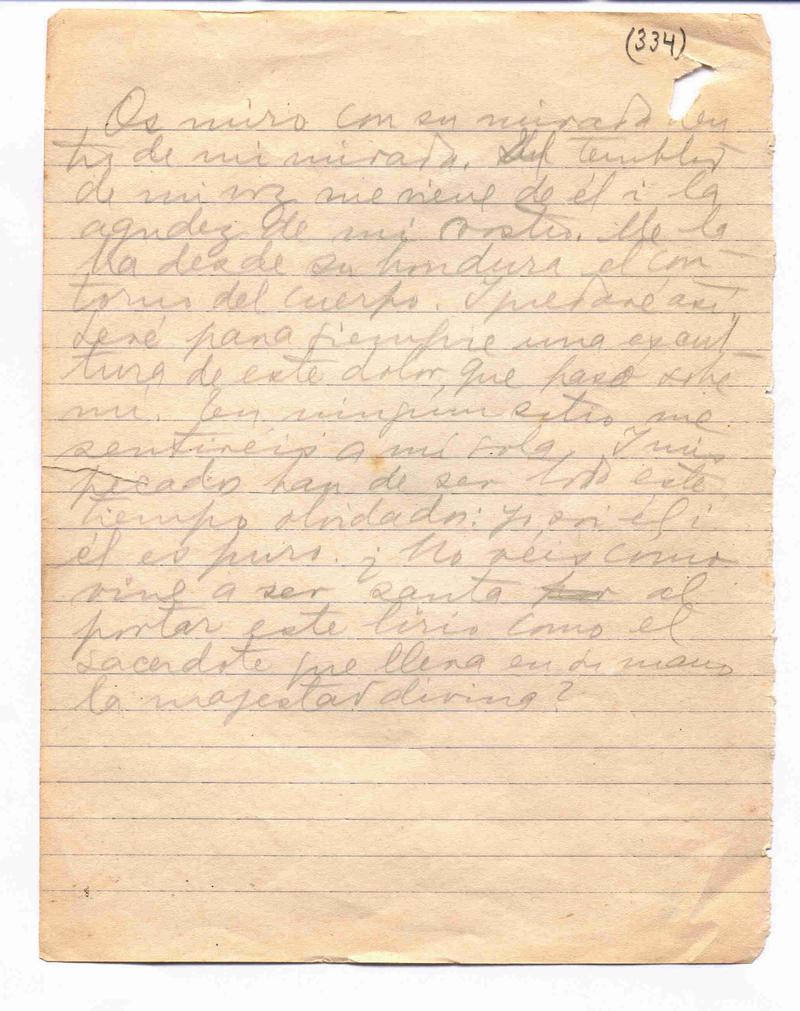 (334)
Os miro con su mirada den
tro de mi mirada. El temblor
de mi voz me viene de él i la
agudez de mi rostro. Me la
bra desde su hondura el con-
torno del cuerpo. I quedaré así,
seré para siempre una escul-
tura de este dolor, que pasó sobre
mí. En ningún sitio me
sentiréis a mí sola. I mis
pecados han de ser todo este
tiempo olvidados: yo soi él i
él es puro. ¿No véis como
vine a ser santa al
portar este lirio como el
sacerdote que lleva en su mano
la majestad divina?